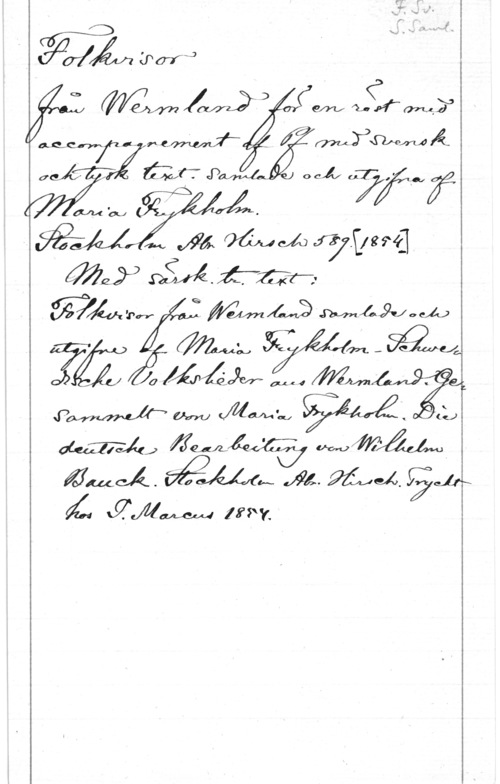 F. Sv.
S. Saml.
Folkvisor
från Wermland för en röst med
accompagnement af Pf med svensk
och tysk text. Samlade och utgifna af
Maria Frykholm.
Stockholm Abr. Hirsch 589. [1884]
Med särsk. tr. text:
Folkvisor från Wermland samlade och
utgifne af Maria Frykholm - Schwe-
dische Volkslieder aus Wermland. Ge-
sammelt von Maria Frykholm. Die
deutsche Bearbeitung von Wilhelm
Bauck. Stockholm Abr. Hirsch. Tryckt
hos I. Marcus 1884.